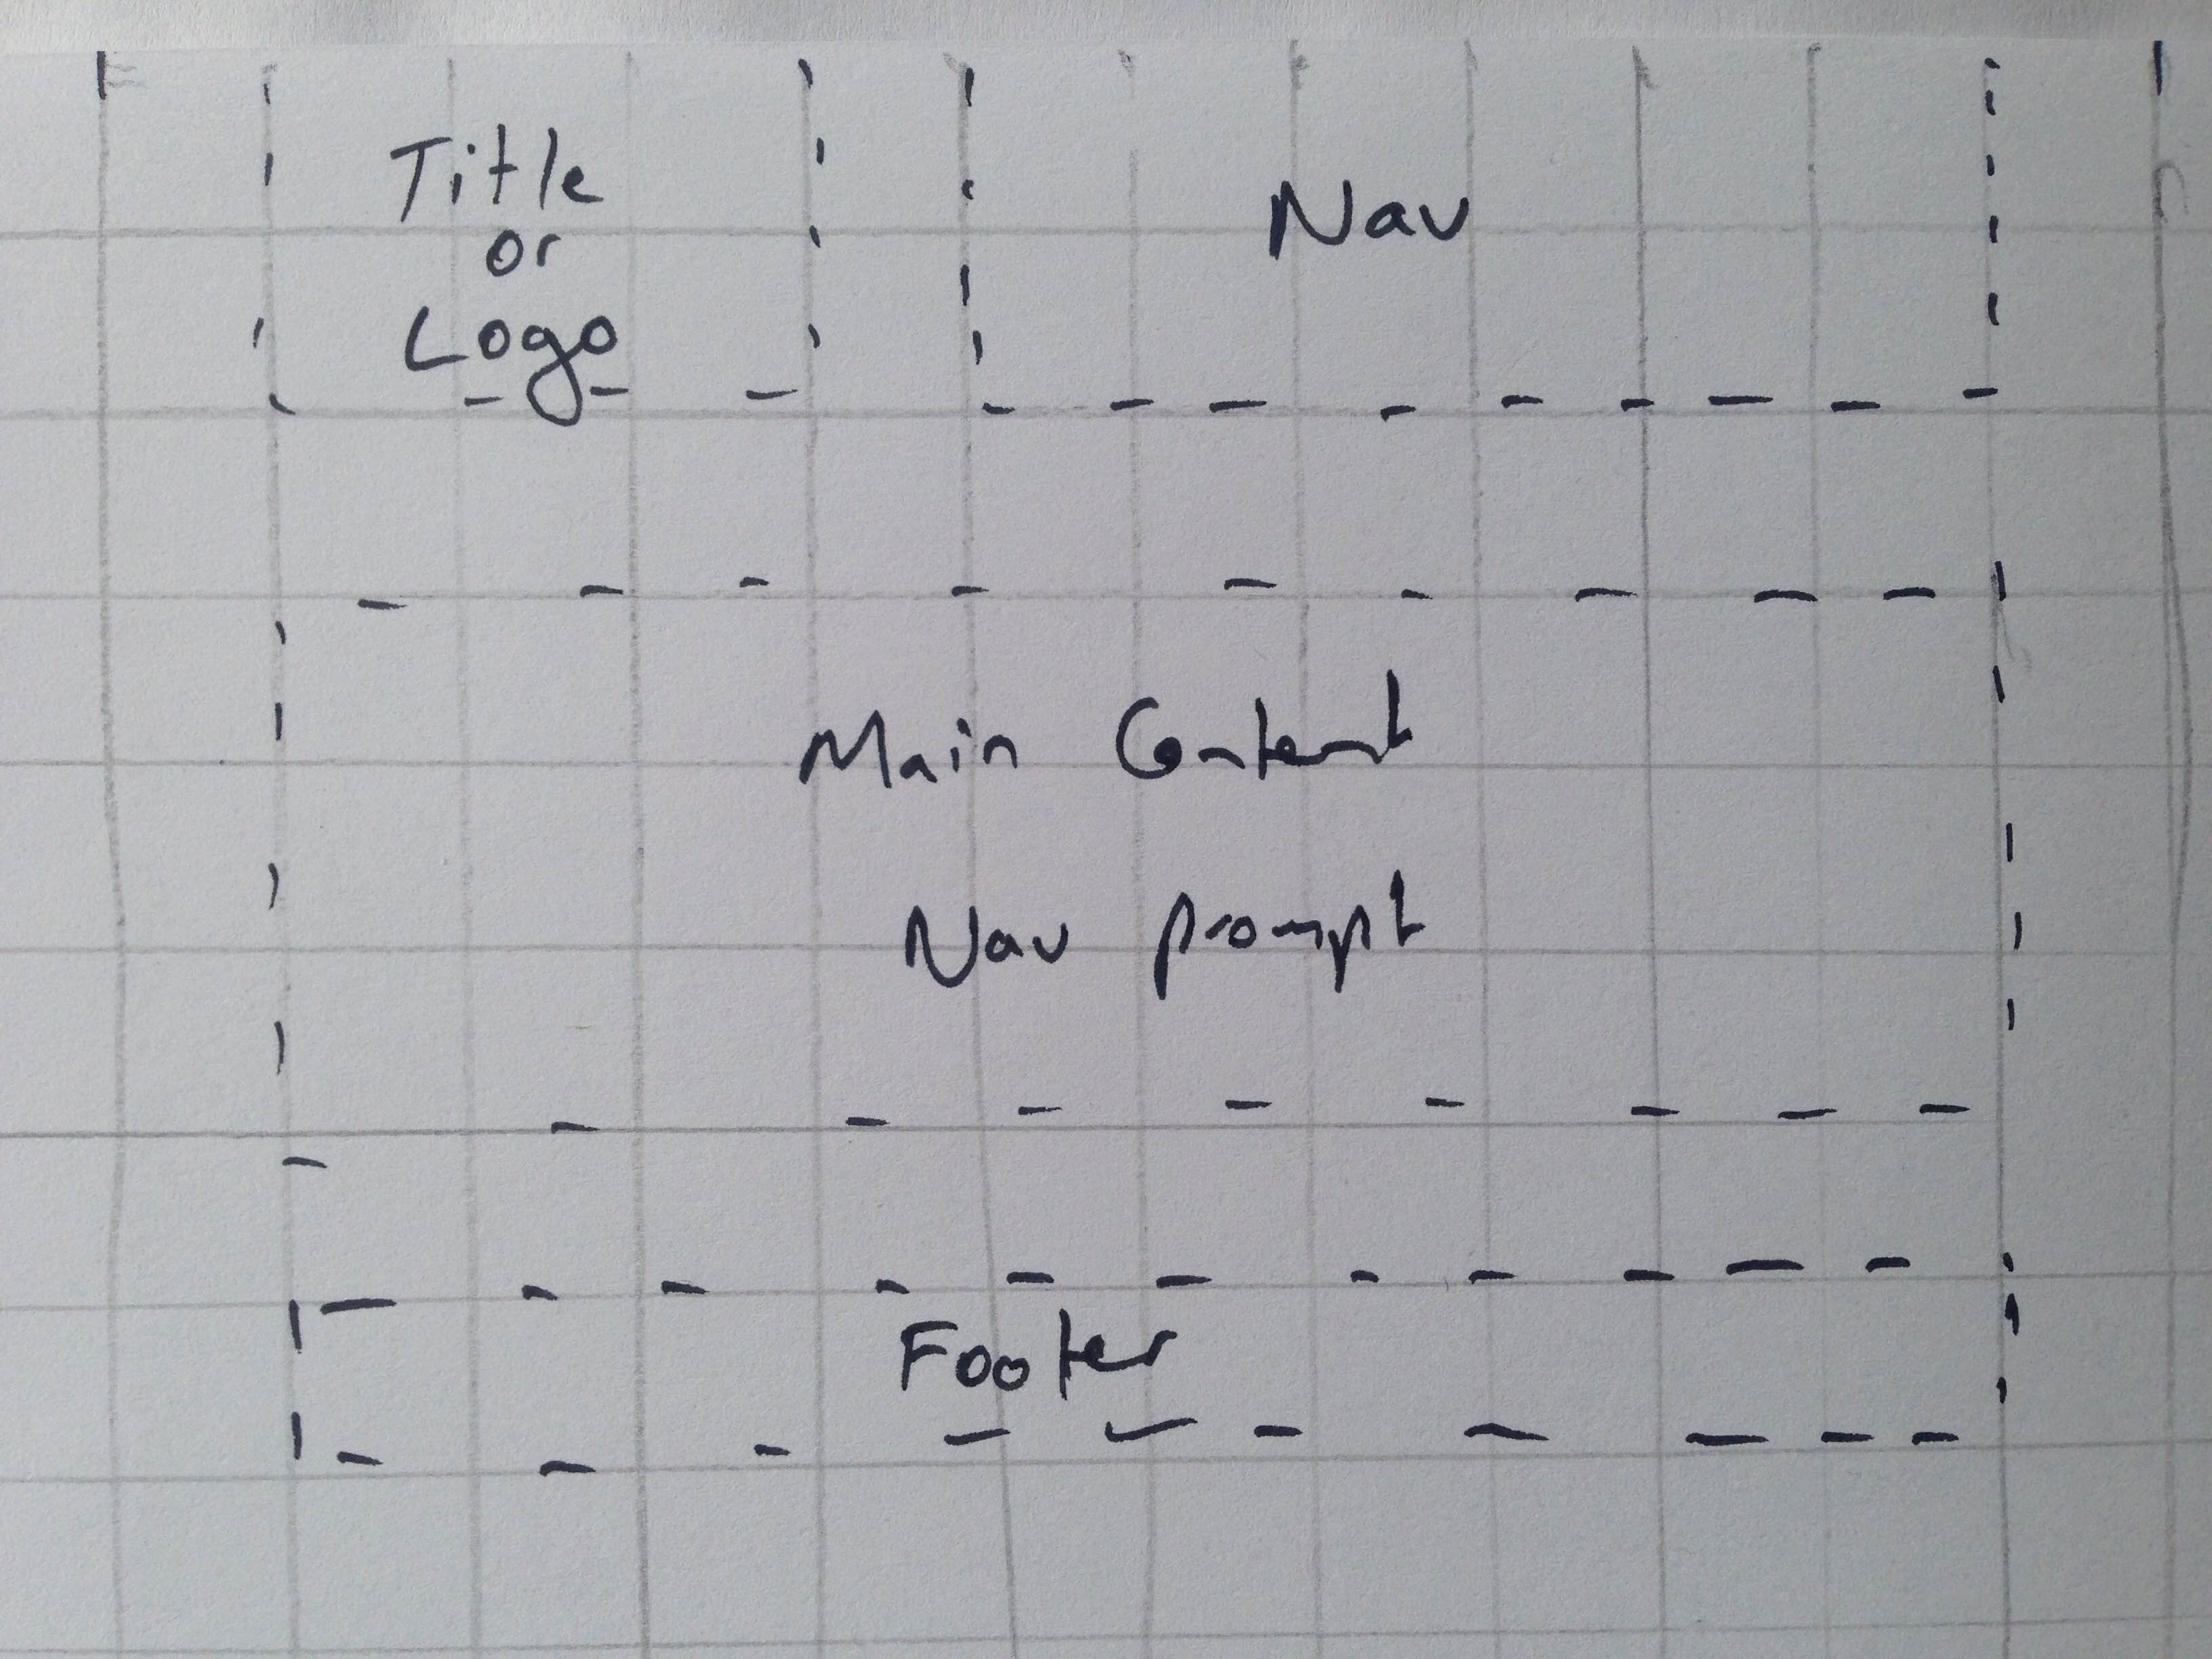 Title
or
Logo
Nav
Main Content
Nav prompt
Footer